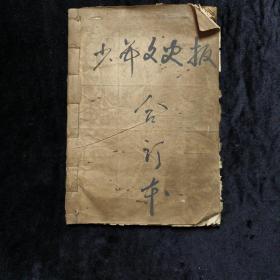 少年文史报
合订本